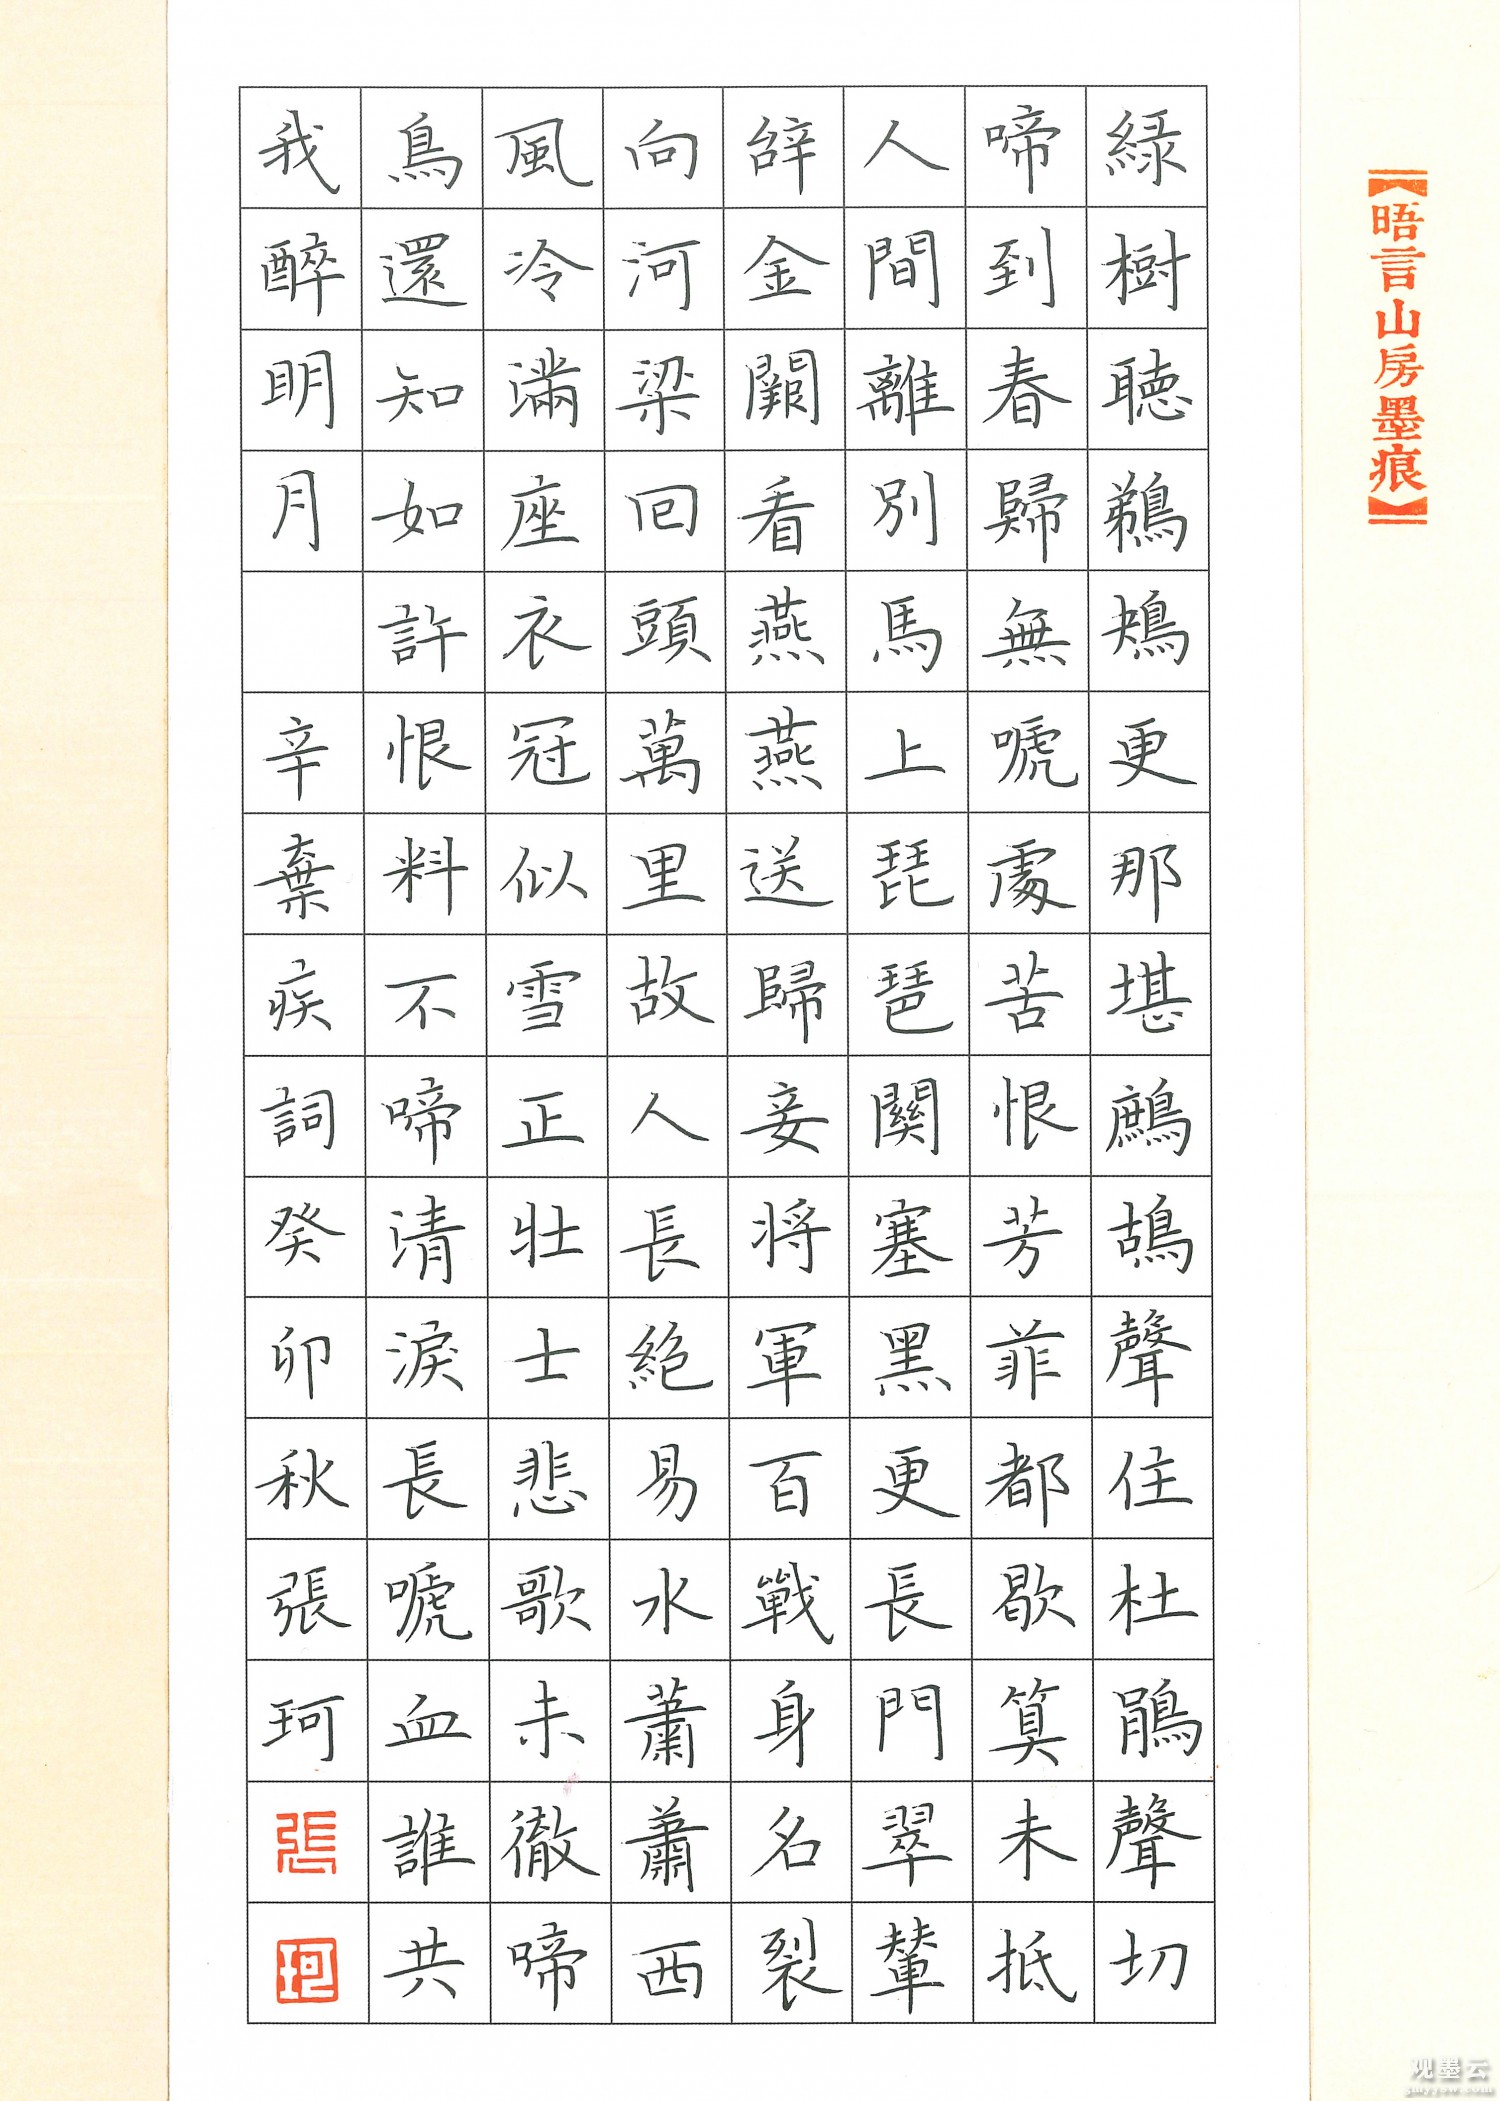 【晤言山房墨痕】
綠樹聽鵜鴂更那堪鷓鴣聲住杜鵑聲切
啼到春歸無嗁處苦恨芳菲都歇算未抵
人間離別馬上琵琶關塞黑更長門翠輦
辭金闕看燕燕送歸妾將軍百戰身名裂
向河梁回頭萬里故人長絕易水蕭蕭西
風冷滿座衣冠似雪正壯士悲歌未徹啼
鳥還知如許恨料不啼清淚長嗁血誰共
我醉明月 辛棄疾詞癸卯秋張珂
張
珂
观墨云
gmyyow.com